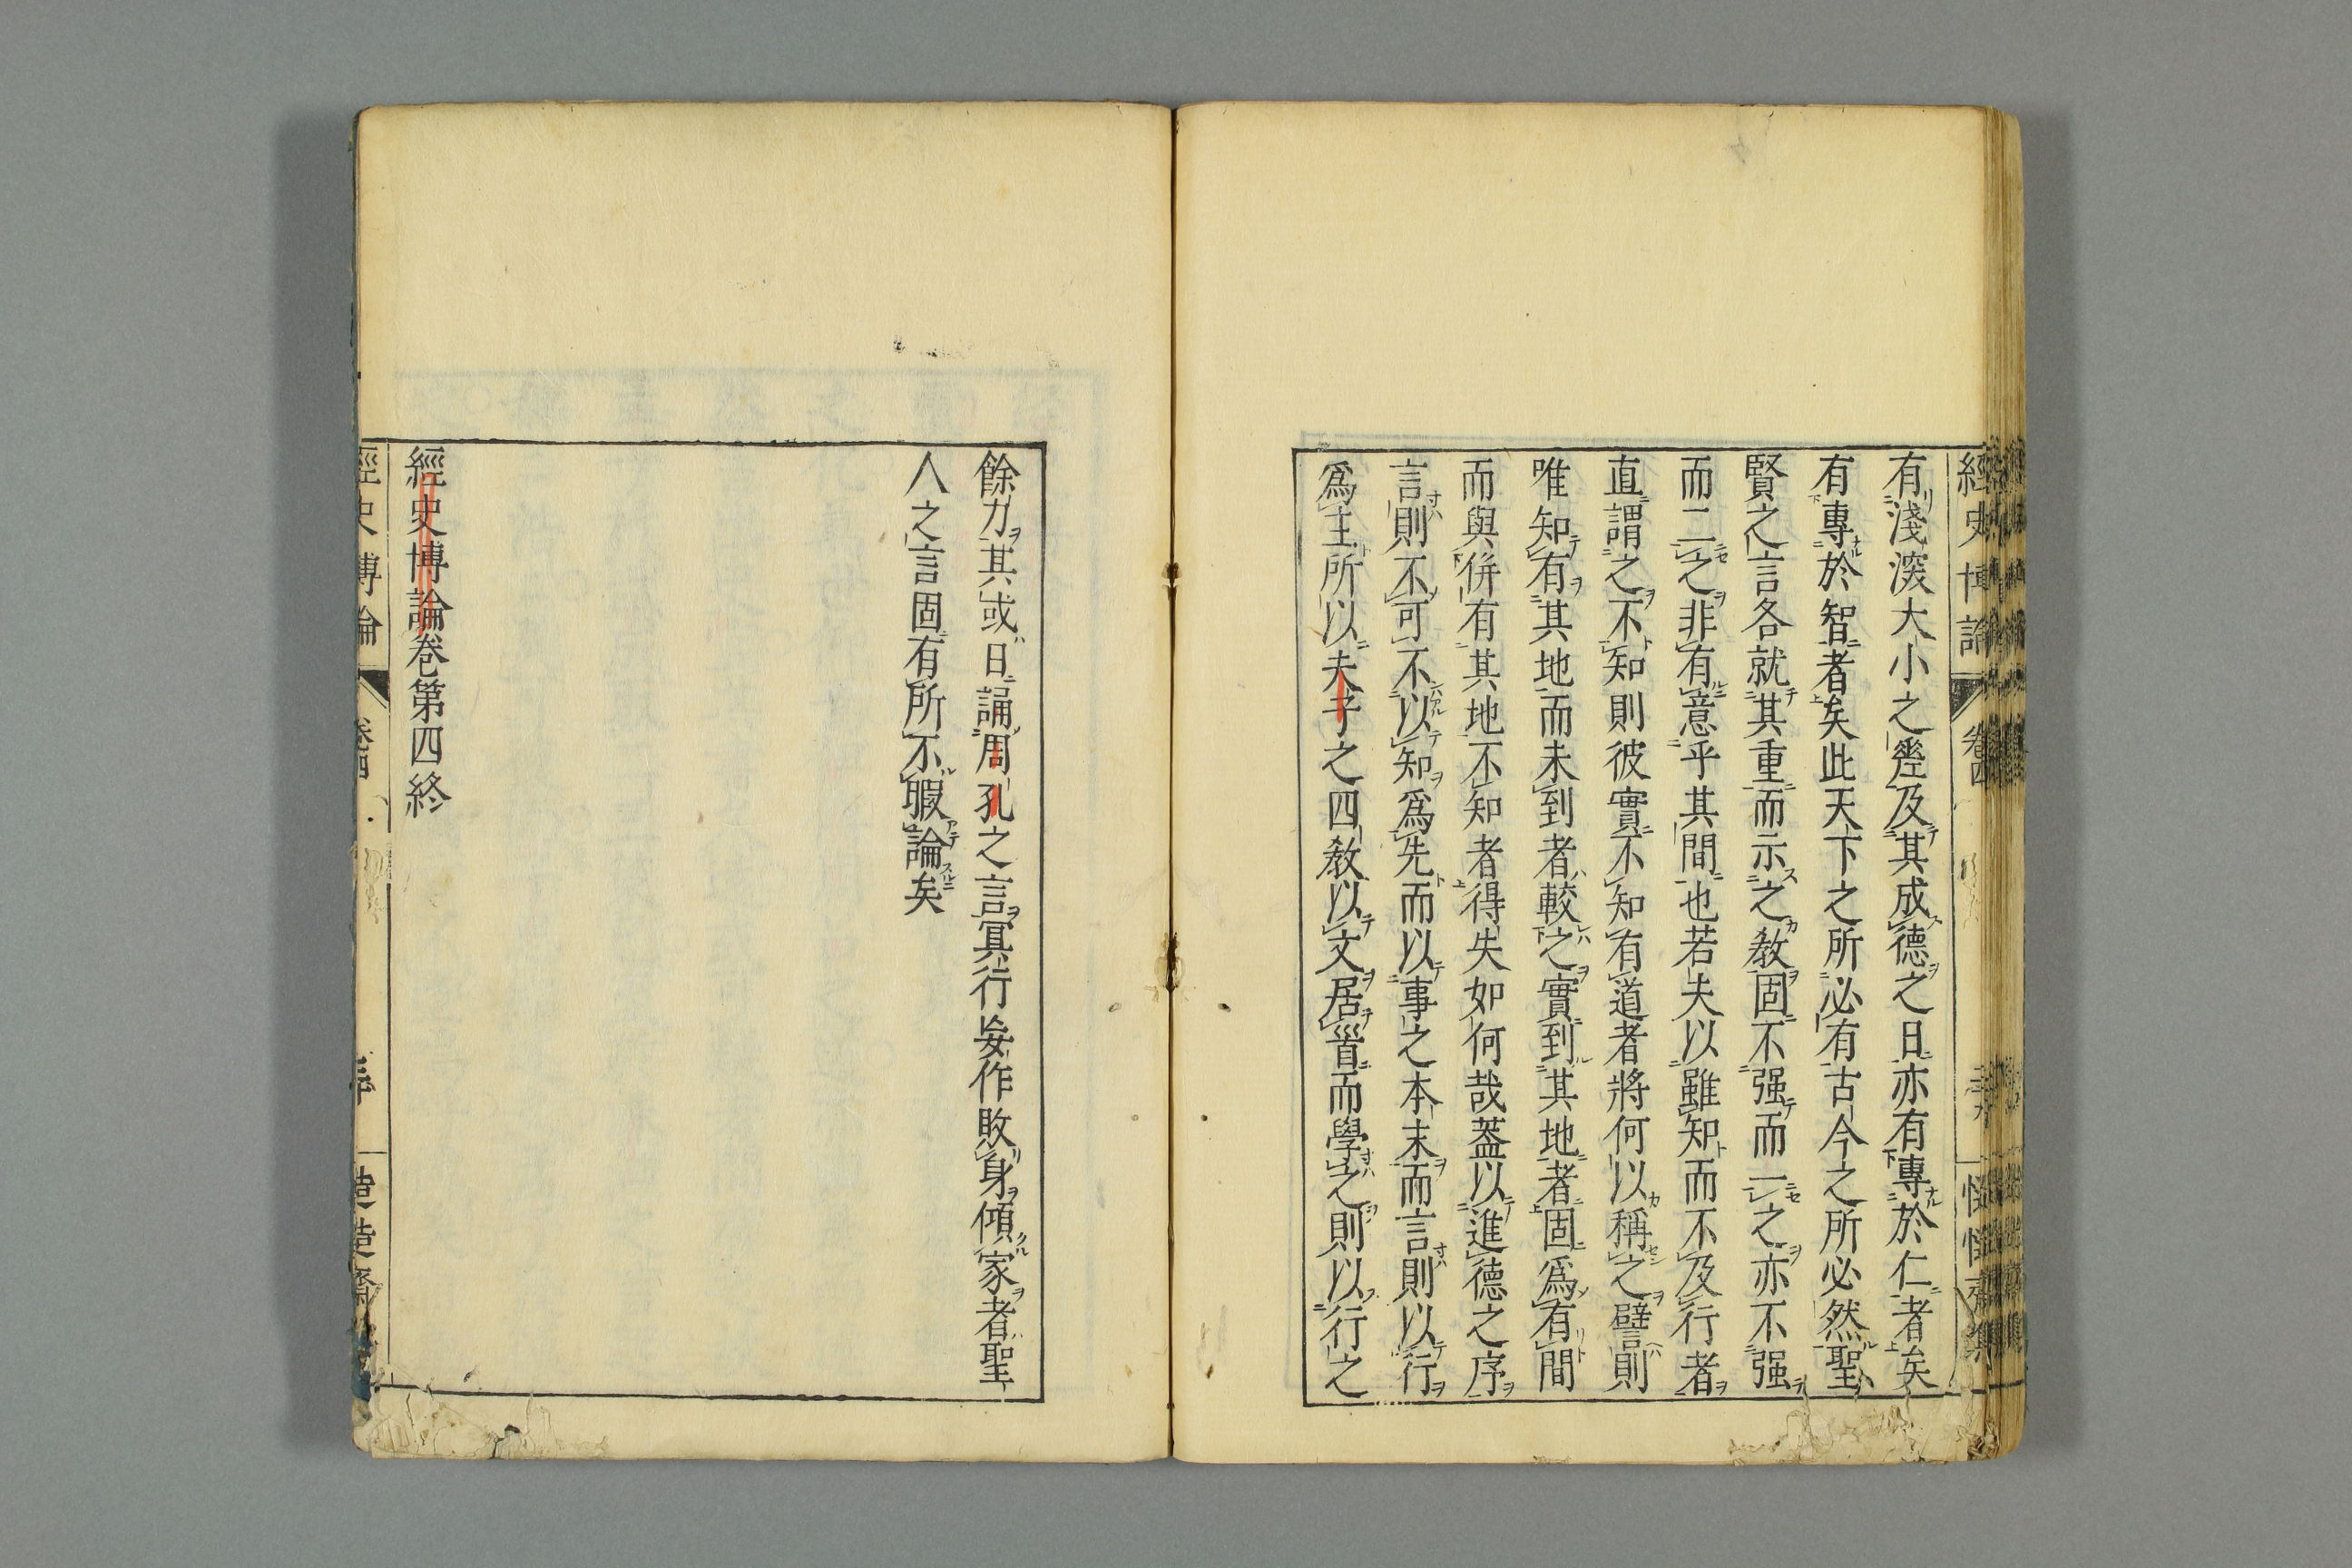 有淺深大小之麈及其成德之日亦有專於仁者矣
有專於智者矣此天下之所必有古今之所必然聖
賢之言各就其重而示之敎固不强而一之亦不强
而二之非有意乎其間也若夫以雖知而不及行者
直謂之不知則彼實不知有道者將何以稱之譬則
唯知有其地而未到者較之實到其地者固爲有間
而與併有其地不知者得失如何哉葢以進德之序
言則不可不以知爲先而以事之本末而言則以行
爲主所以夫子之四敎以文居首而學之則以行之
餘力其或日誦周孔之言冥行妄作敗身傾家者聖
人之言固有所不暇論矣
經史博論卷第四終
經史博論 卷四